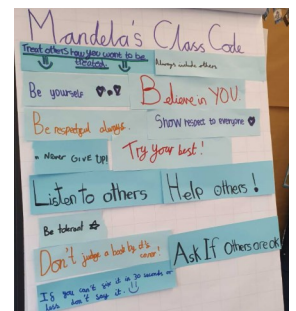 Mandela's Class Code
Treat others how you want to be
treated.
Always include others
Be yourself
Believe in YOU.
Be respectful always.
Show respect to everyone
Never GIVE UP!
Try your best!
Listen to others
Help others!
Be tolerant
Don't judge a book by it's
cover!
Ask If Others are ok
If you can't fix it in 30 seconds or
less don't say it.